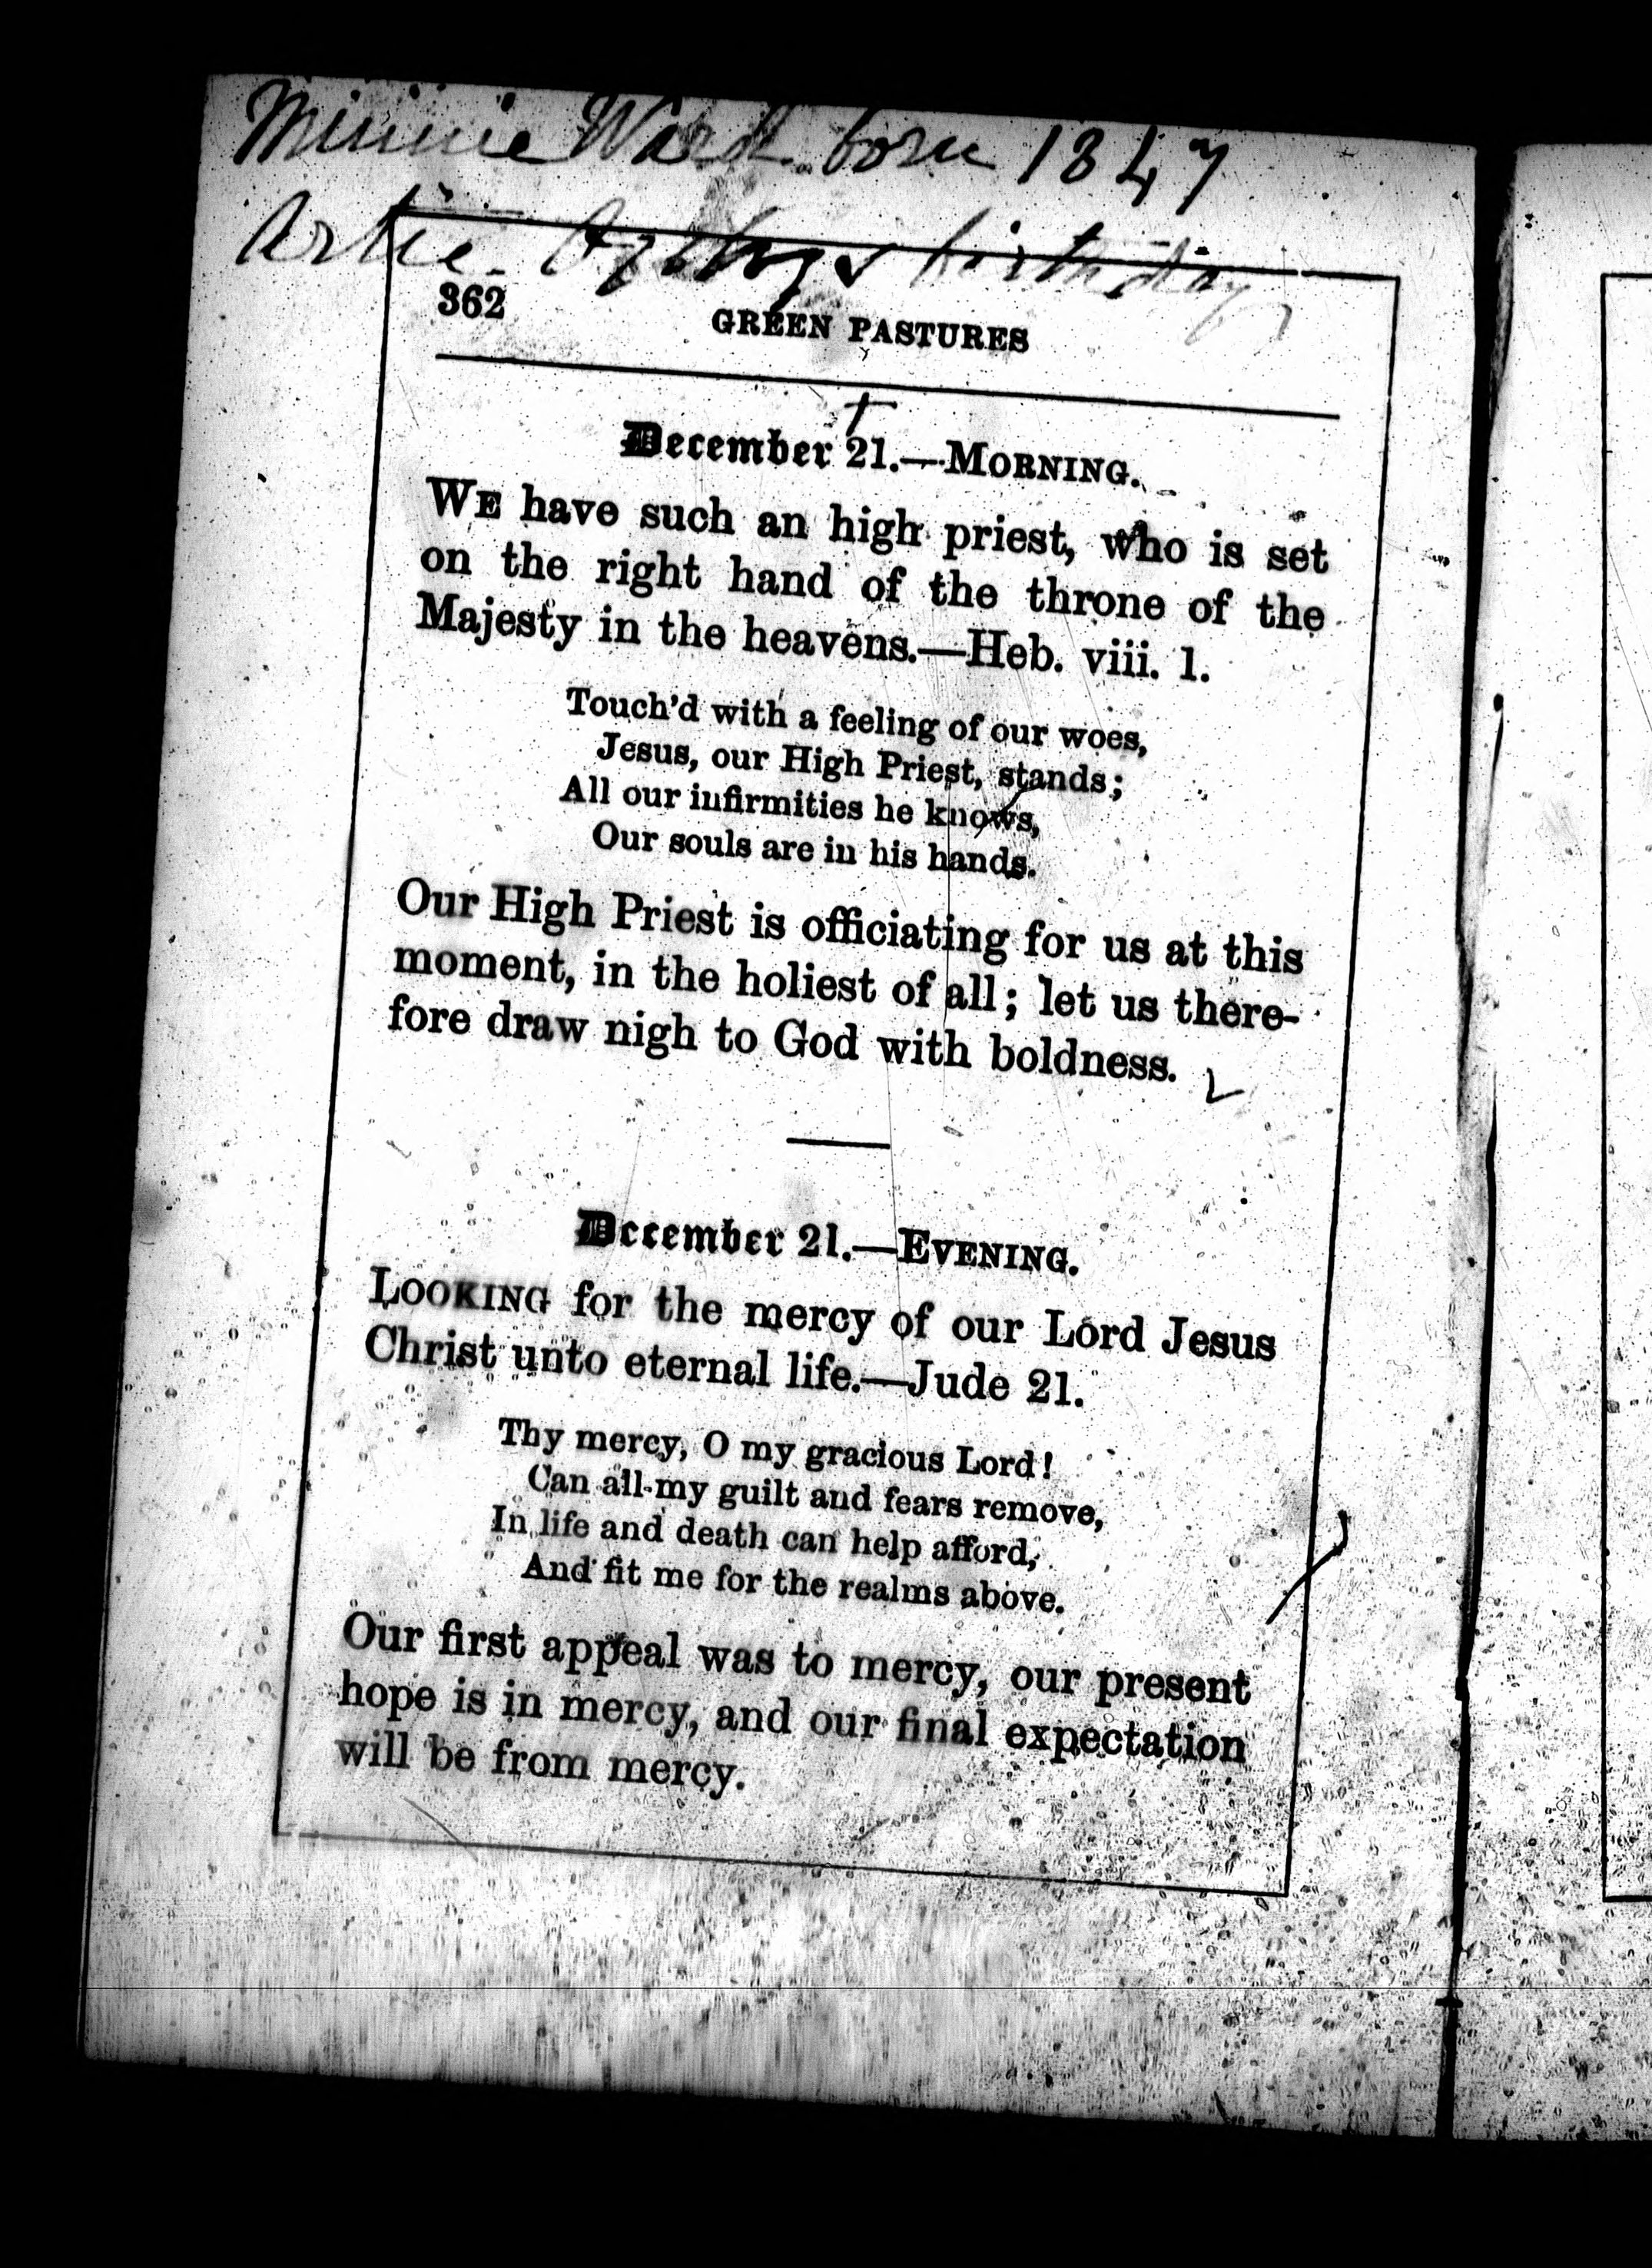 Minnie Ward born 1847
Artie birthday
362
GREEN PASTURES
December 21.—MORNING.
WE have such an high priest, who is set
on the right hand of the throne of the
Majesty in the heavens.—Heb. viii. 1.
Touch'd with a feeling of our woes,
Jesus, our High Priest, stands;
All our infirmities he knows,
Our souls are in his hands.
Our High Priest is officiating for us at this
moment, in the holiest of all; let us there-
fore draw nigh to God with boldness.
December 21.—EVENING.
LOOKING for the mercy of our Lord Jesus
Christ unto eternal life.—Jude 21.
Thy mercy, O my gracious Lord!
Can all my guilt and fears remove,
In life and death can help afford,
And fit me for the realms above.
Our first appeal was to mercy, our present
hope is in mercy, and our final expectation
will be from mercy.